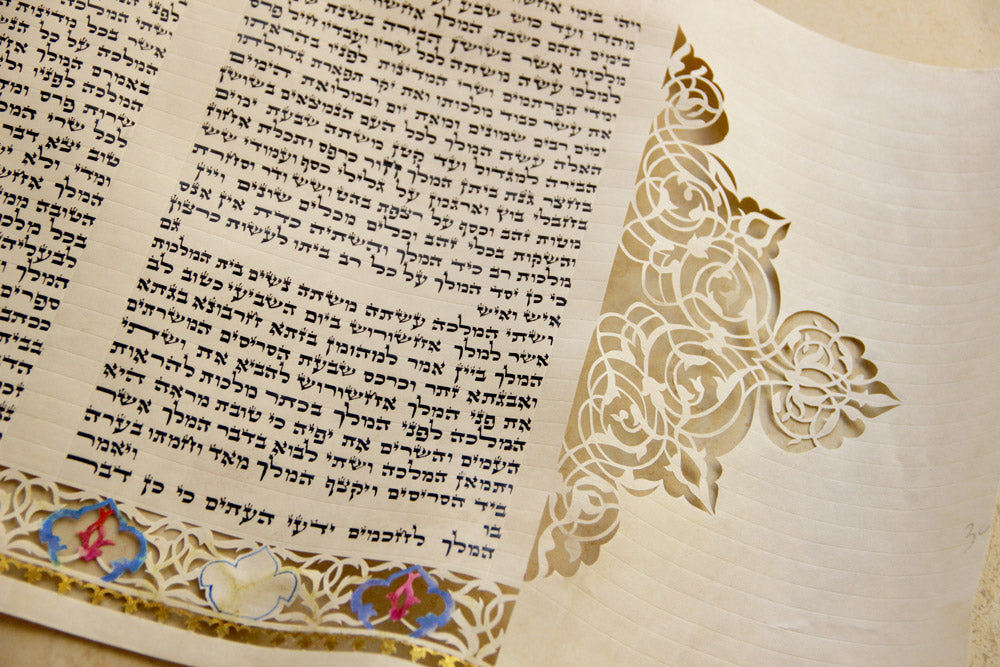 ויהי בימי
מהדו ועד כוש שבע
בימים ההם כשבת המלך
מלכותו אשר בשושן הבירה בשנת
למולכו עשה משתה לכל שריו ועבדיו חיל פרס
ומדי הפרתמים ושרי המדינות לפניו בהראתו
את עשר כבוד מלכותו ואת יקר תפארת גדולתו
ימים רבים שמונים ומאת יום ובמלואת הימים
האלה עשה המלך לכל העם הנמצאים בשושן
הבירה למגדול ועד קטן משתה שבעת ימים
בחצר גנת ביתן המלך חור כרפס ותכלת אחוז
בחבלי בוץ וארגמן על גלילי כסף ועמודי שש
מטות זהב וכסף על רצפת בהט ושש ודר וסחרת
והשקות בכלי זהב וכלים מכלים שונים ויין
מלכות רב כיד המלך והשתיה כדת אין אנס
כי כן יסד המלך על כל רב ביתו לעשות כרצון
איש ואיש גם
ושתי המלכה עשתה משתה נשים בית המלכות
אשר למלך אחשורוש ביום השביעי כטוב לב
המלך ביין אמר למהומן בזתא חרבונא בגתא
ואבגתא זתר וכרכס שבעת הסריסים המשרתים
את פני המלך אחשורוש להביא את ושתי
המלכה לפני המלך בכתר מלכות להראות
העמים והשרים את יפיה כי טובת מראה היא
ותמאן המלכה ושתי לבוא בדבר המלך אשר
ביד הסריסים ויקצף המלך מאד וחמתו בערה
בו ויאמר
המלך לחכמים ידעי העתים כי כן דבר
המלכה על כל
אשר בכל
באמרם המלך
המלכה לפניו
שרות פרס
לכל שרי
טוב יצא דבר
ומדי ולא
המלך
הטובה
בכל
המלך
ספרים
ככתב